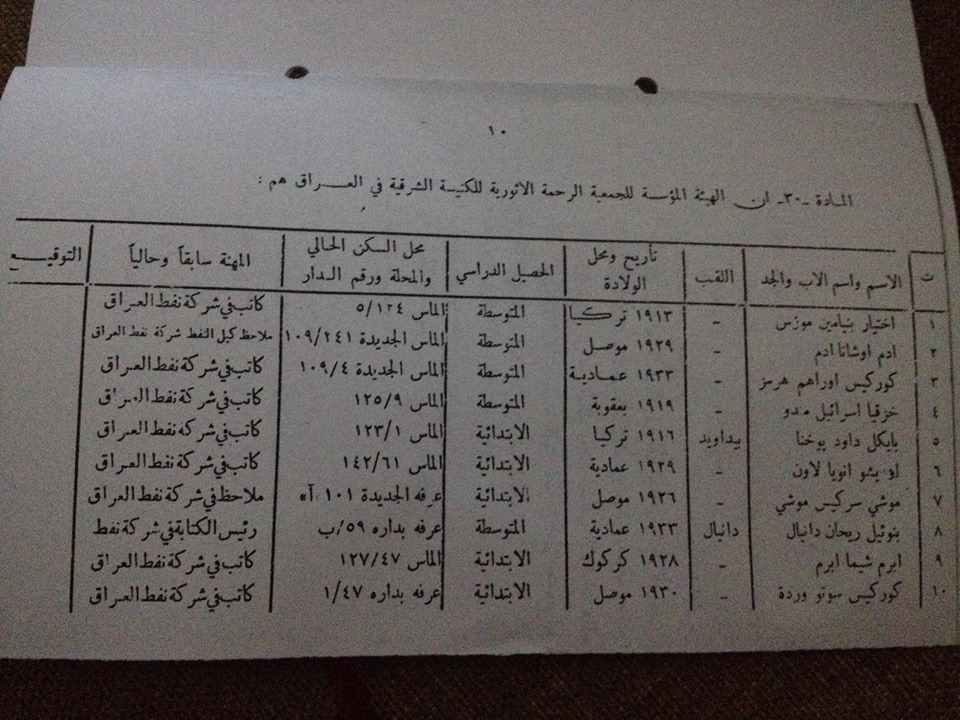 ١٠
المادة ـ٣٠ـ ان الهيئة المؤسسة للجمعية الرحمة الاثورية للكنيسة الشرقية في العـراق هم :
ت الاسم واسم الاب والجد اللقب تأريخ ومحل الولادة الحصيل الدراسي محل السكن الحالي والمحلة ورقم الدار المهنة سابقاً وحالياً التوقيـع
١ اختيار بنيامين موزس ـ ١٩١٣ تركيا المتوسطة الماس ٥/١٢٤ كاتب في شركة نفط العراق
٢ ادم اوشانا ادم ـ ١٩٢٩ موصل المتوسطة الماس الجديدة ١٠٩/٢٤١ ملاحظ كيل النفط شركة نفط العراق
٣ كوركيس اوراهم هرمز ـ ١٩٣٣ عمادية المتوسطة الماس الجديدة ١٠٩/٤ كاتب في شركة نفط العراق
٤ خزقيا اسرائيل مدو ـ ١٩١٩ بعقوبة المتوسطة الماس ١٢٥/٩ كاتب في شركة نفط العراق
٥ بايكل داود يوخنا بيداويد ١٩١٦ تركيا الابتدائية الماس ١٢٣/١ كاتب في شركة نفط العراق
٦ انويا لاون ـ ١٩٢٩ عمادية الابتدائية الماس ١٤٢/٦١ كاتب في شركة نفط العراق
٧ موشي سركيس موشي ـ ١٩٢٦ موصل الابتدائية عرفه الجديدة ١٠١ ملاحظ في شركة نفط العراق
٨ بنوئيل ريحان دانيال دانيال ١٩٣٣ عمادية المتوسطة عرفه بداره ٥٩/ب رئيس الكتابة في شركة نفط
٩ ابرم شيما ابرم ـ ١٩٢٨ كركوك الابتدائية الماس ١٢٧/٤٧ كاتب في شركة نفط العراق
١٠ كوركيس سوتو وردة ـ ١٩٣٠ موصل الابتدائية عرفه بداره ١/٤٧ كاتب في شركة نفط العراق